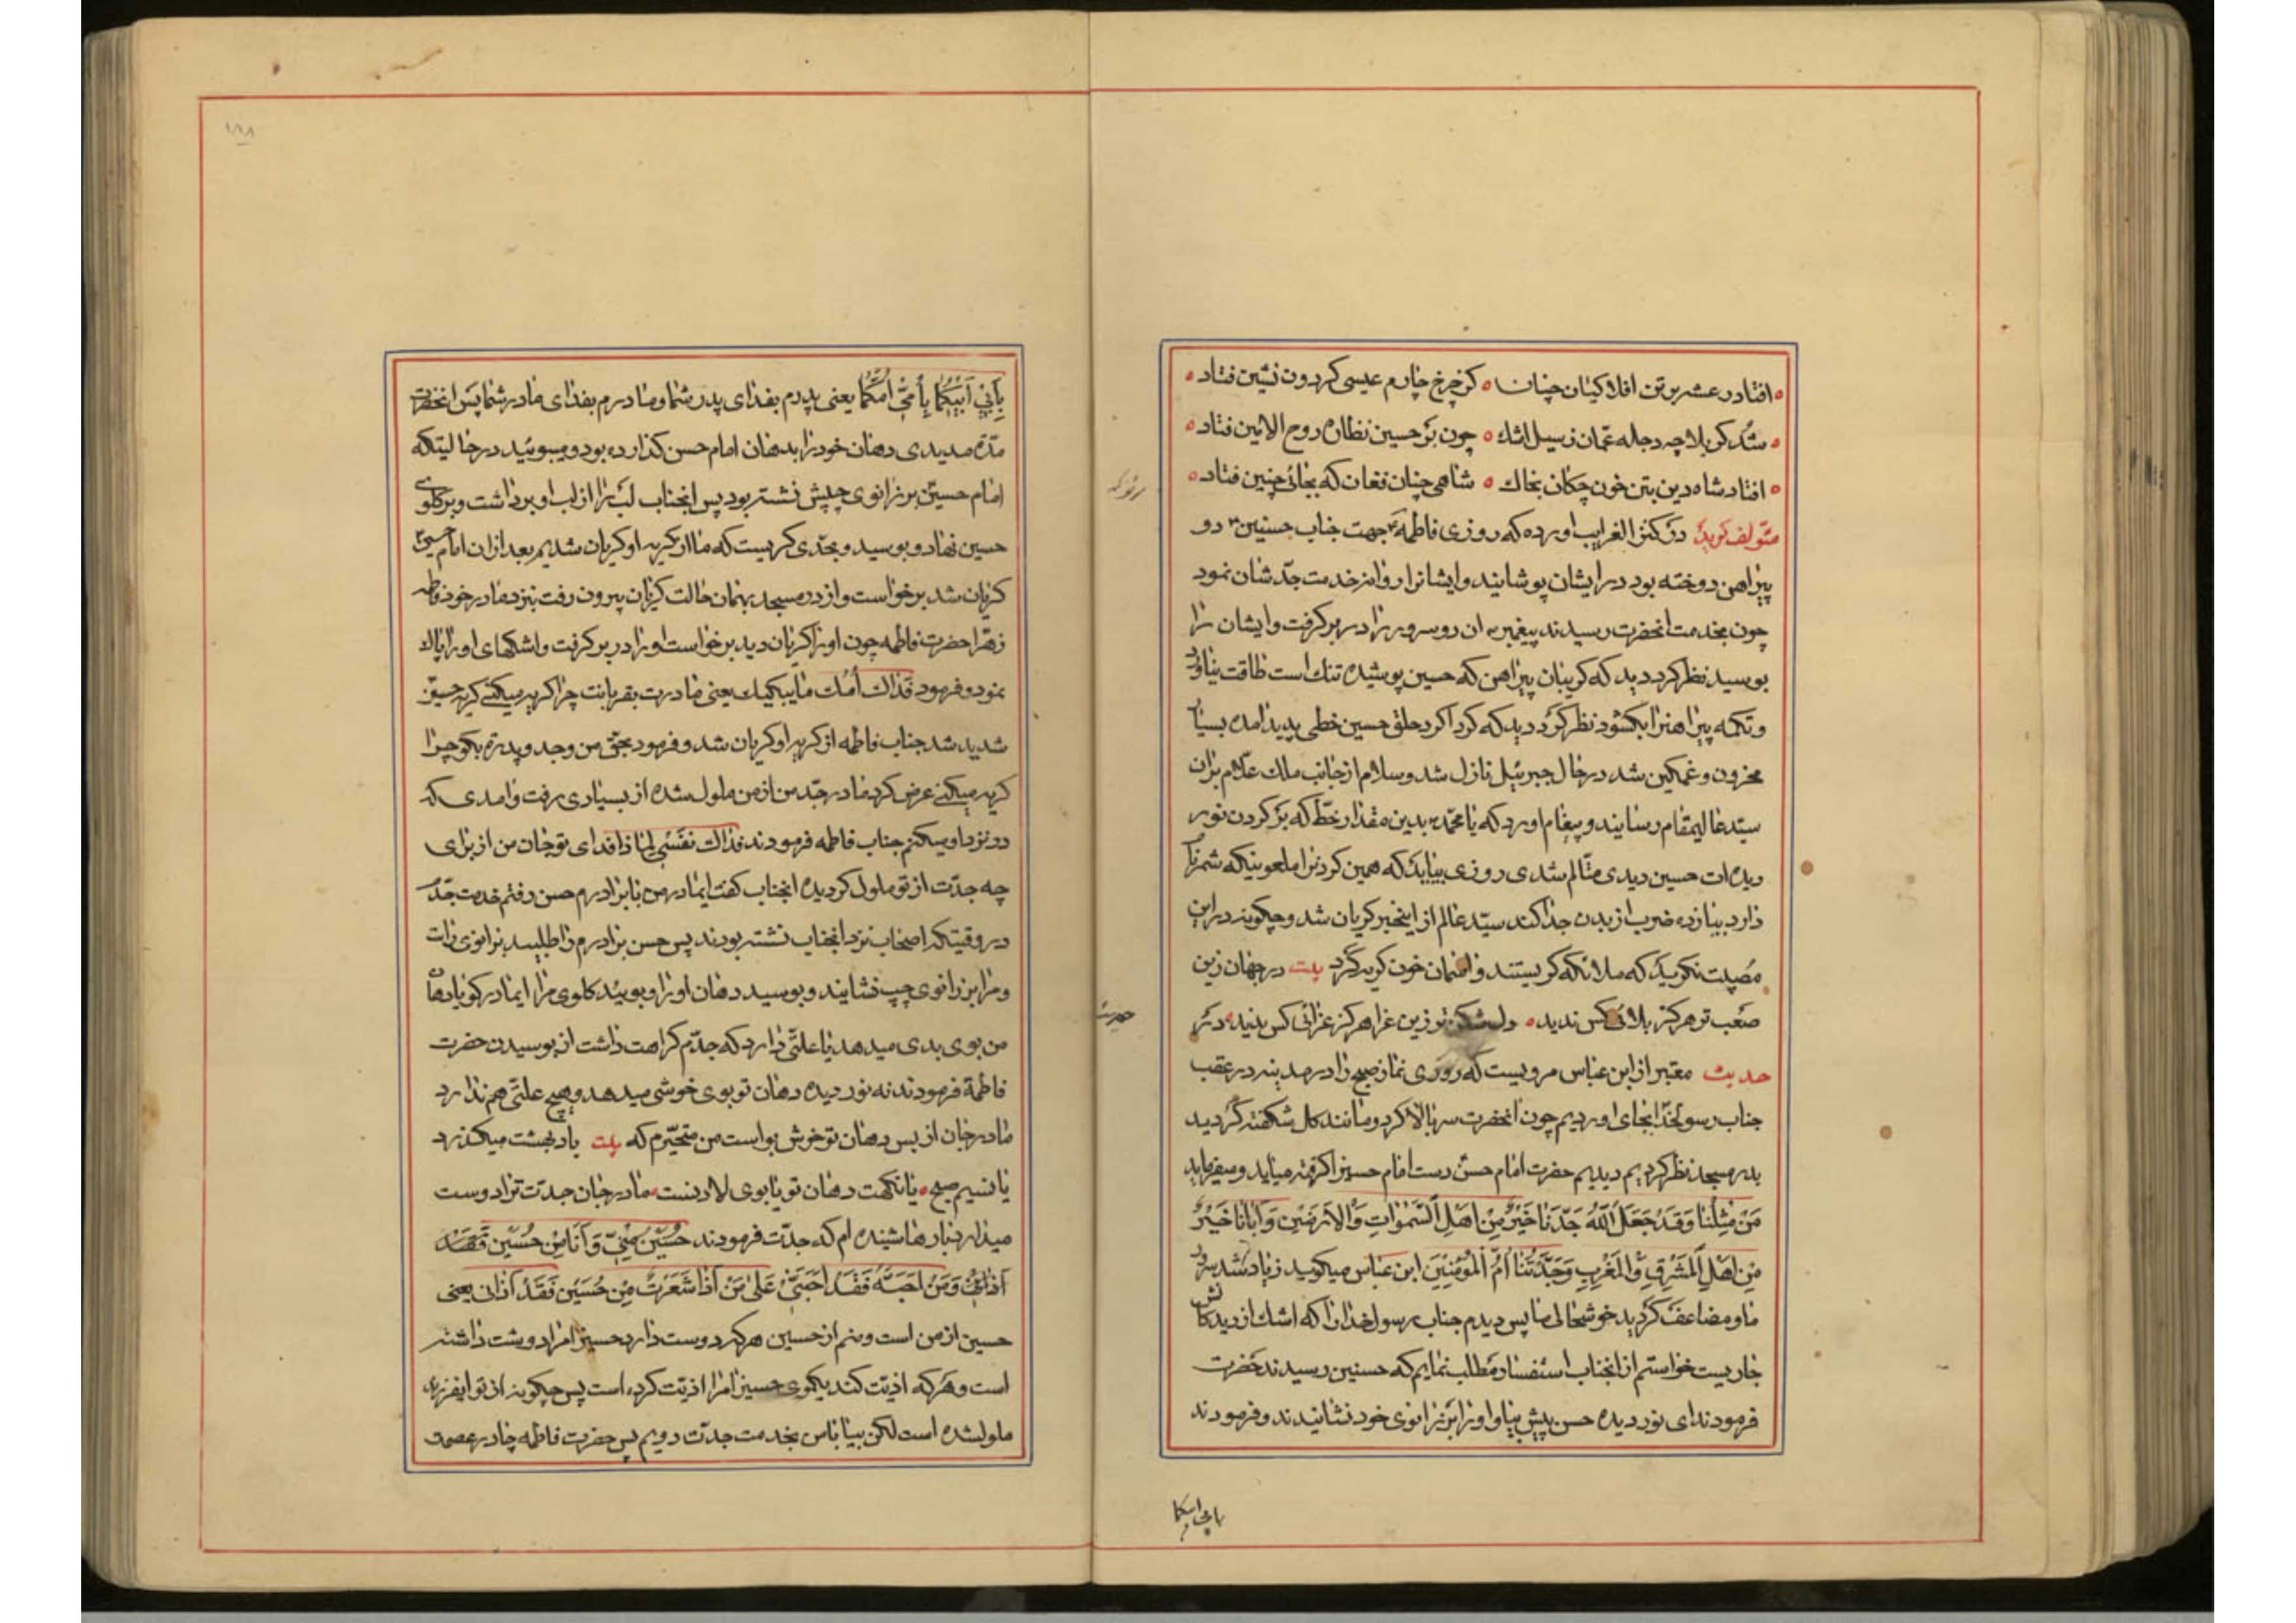 افتاد رعشه بر تن افلاکیان چنان ۰ کز چرخ چارم عیسی کردون نشین فتاد
شد کربلا چه دجله عمان ز سیل اشك ۰ چون بر حسین نظاره روح الامین فتاد
افتاد شاه دین بتن خون چکان بخاك ۰ شاهی چنان فغان که بجائی چنین فتاد
مؤلف کوید در کنز الغرایب اورده که روزی فاطمه جهت جناب حسنین دو
پیراهن دوخته بود در ایشان پوشانید و ایشانرا روانه خدمت جدشان نمود
چون بخدمت انحضرت رسیدند پیغمبر ان دو سرور را در بر کرفت و ایشان را
بوسید نظر کرد دید که کریبان پیراهن که حسین پوشیده تنك است طاقت نیاورد
و تکمه پیراهنرا بکشود نظر کرد دید که کرداکرد حلق حسین خطی پدید امده بسیار
محزون و غمکین شد در حال جبرئیل نازل شد و سلام از جانب ملك علام بران
سید عالیمقام رسانید و پیغام اورد که یا محمد بدین مقدار خط که بر کردن نور
دیده ات حسین دیدی متالم شدی روزی بیاید که همین کردنرا ملعونیکه شمر نام
دارد بدوازده ضرب از بدن جدا کند سید عالم از اینخبر کریان شد و چکونه در این
مصیبت نکرید که ملائکه کریستند و اسمان خون کریه کرد بیت در جهان زین
صعب تر هرکز بلائی کس ندید ۰ دل شکن تر زین عزا هرکز عزائی کس ندید ۰ در
حدیث معتبر از ابن عباس مرویست که روزی نماز صبح را در مدینه در عقب
جناب رسولخدا بجای اوردیم چون انحضرت سر بالا کرد و مانند کل شکفته کردید
بدر مسجد نظر کردیم دیدیم حضرت امام حسن دست امام حسین را کرفته میاید و میفرماید
مَنْ مِثْلُنا وَقَدْ جَعَلَ اللّٰهُ جَدَّنا خَیْرٌ مِنْ اَهْلِ السَّمٰواتِ وَالْاَرَضینِ وَ آبانا خَیْرٌ
مِنْ اَهْلِ الْمَشْرِقِ وَالْمَغْرِبِ وَجَدَّتُنا اُمُّ الْمُؤْمِنینَ ابن عباس میکوید زیاد شد سرور
ما و مضاعف کردید خوشحالی ما پس دیدم جناب رسولخدا را که اشك از دیدکانش
جاریست خواستم از انجناب استفسار مطلب نمایم که حسنین رسیدند حضرت
فرمودند ای نور دیده حسن پیش بیا و او را بر زانوی خود نشانیدند و فرمودند
بابی ابیکما
بِاَبی اَبیکُما بِاُمّی اُمُّکُما یعنی پدرم بفدای پدر شما و مادرم بفدای مادر شما پس انحضرت
مدة مدیدی دهان خود را بدهان امام حسن کذارده بود و میبوئید در حالیتکه
امام حسین بر زانوی چپش نشسته بود پس انجناب لب را از لب او برداشت و بر کلوی
حسین نهاد و بوسید و بحدی کریست که ما از کریه او کریان شدیم بعد از ان امام حسین
کریان شد برخواست و از در مسجد بهمان حالت کریان بیرون رفت بنزد مادر خود فاطمه
زهرا حضرت فاطمه چون او را کریان دید برخواست او را در بر کرفت و اشکهای او را پاك
نمود و فرمود فداك اُمُّك ما یبکیك یعنی مادرت بقربانت چرا کریه میکنی کریه حسین
شدید شد جناب فاطمه از کریه او کریان شد و فرمود بحق من و جد و پدرت بکو چرا
کریه میکنی عرض کرد مادر جد من از من ملول شده از بسیاری رفت و امدی که
در نزد او میکنم جناب فاطمه فرمودند فداك نفسی لماذا فدای تو جان من از برای
چه جدت از تو ملول کردیده انجناب کفت ایمادر من با برادرم حسن رفتم خدمت جدم
در وقتیکه اصحاب نزد انجناب نشسته بودند پس حسن برادرم را طلبید بزانوی راست
و مرا بر زانوی چپ نشانید و بوسید دهان او را و بوئید کلوی مرا ایمادر کویا دهان
من بوی بدی میدهد یا علتی دارد که جدم کراهت داشت از بوسیدن حضرت
فاطمه فرمودند نه نور دیده دهان تو بوی خوشی میدهد و هیچ علتی هم ندارد
مادر جان از بس دهان تو خوش بو است من متحیرم که بیت باد بهشت میکذرد
یا نسیم صبح ۰ یا نکهت دهان تو یا بوی لادنست ۰ مادر جان جدت ترا دوست
میدارد بارها شنیده ام که جدت فرمودند حُسَیْنٌ مِنّی وَ اَنَا مِنْ حُسَیْنٍ فَقَدْ
آذانی وَمَنْ اَحَبَّهُ فَقَدْ اَحَبَّنی عَلٰی مَنْ آذا شَعْرَتٌ مِنْ حُسَیْنٍ فَقَدْ آذانی یعنی
حسین از من است و منم از حسین هرکه دوست دارد حسین را مرا دوست داشته
است و هرکه اذیت کند یکموی حسین را مرا اذیت کرده است پس چکونه از تو ایفرزند
ملولشده است لکن بیا با من بخدمت جدت رویم پس حضرت فاطمه چادر عصمت
۱۸۸